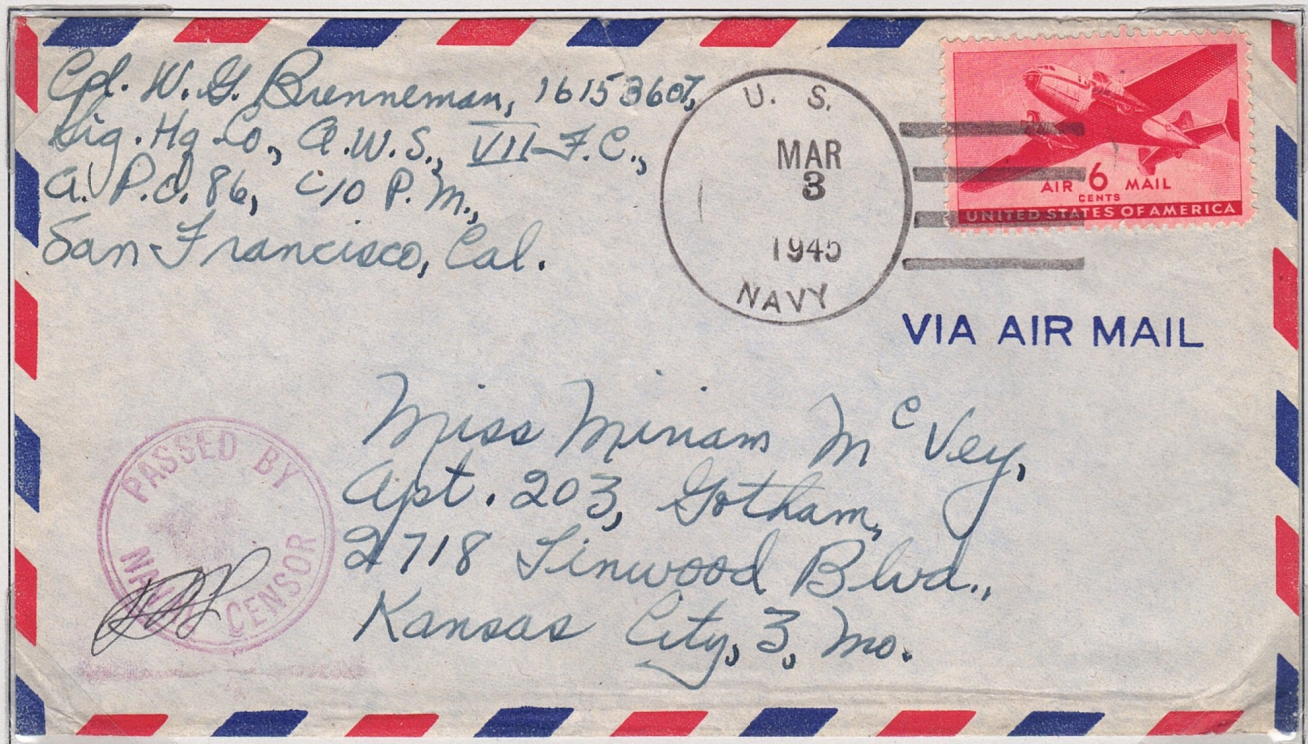 Cpl. W. G. Brenneman, 16153607,
Sig. Hq Co., A.W.S., VII F.C.,
A.P.O. 86, c/o P.M.,
San Francisco, Cal.
U. S.
MAR
3
1945
NAVY
AIR 6 MAIL
CENTS
UNITED STATES OF AMERICA
VIA AIR MAIL
Miss Miriam McVey,
Apt. 203, Gotham,
2718 Linwood Blvd.,
Kansas City, 3, Mo.
PASSED BY
NAVAL CENSOR